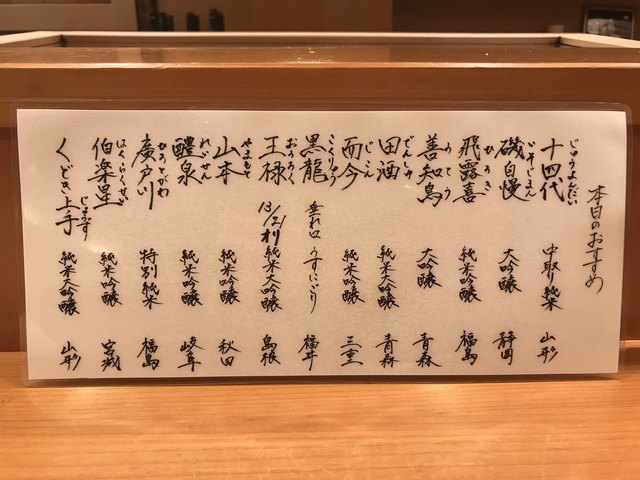 本日のおすすめ
十四代 じゅうよんだい 中取り純米 山形
磯自慢 いそじまん 大吟醸 静岡
飛露喜 ひろき 純米吟醸 福島
善知鳥 うとう 大吟醸 青森
田酒 でんしゅ 純米吟醸 青森
而今 じこん 純米吟醸 三重
黒龍 こくりゅう 垂れ口 うすにごり 福井
王禄 おうろく 13/21 オリ 純米大吟醸 島根
山本 やまもと 純米吟醸 秋田
醴泉 れいせん 純米吟醸 岐阜
廣戸川 ひろとがわ 特別純米 福島
伯楽星 はくらくせい 純米吟醸 宮城
くどき上手 じょうず 純米大吟醸 山形